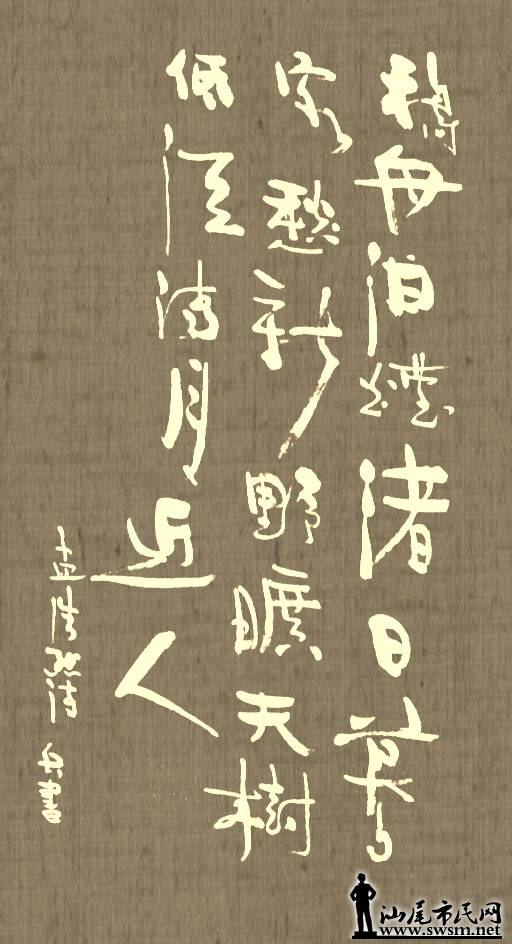 移舟泊煙渚日暮
客愁新野曠天樹
低江清月近人
孟浩然诗 兵書
汕尾市民网
www.swsm.net